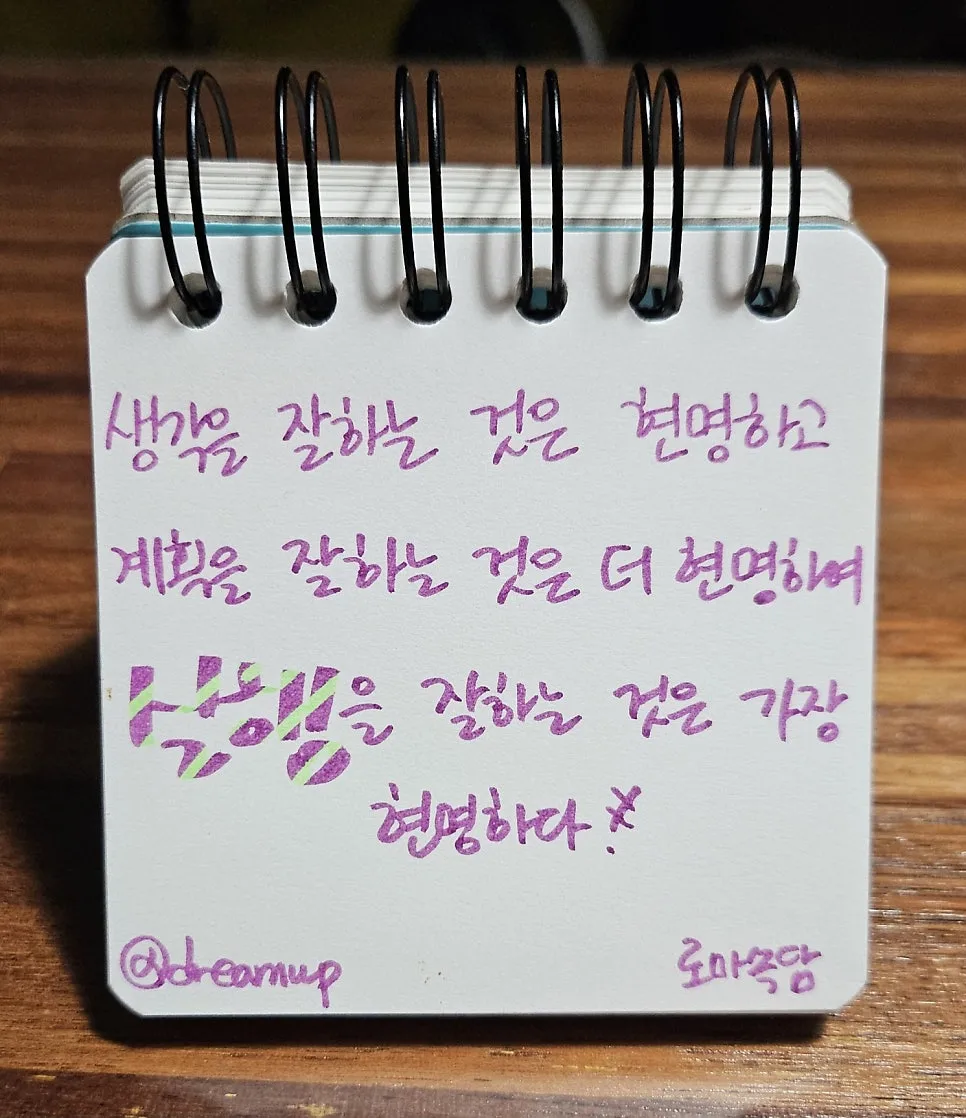 생각을 잘하는 것은 현명하고
계획을 잘하는 것은 더 현명하며
실행을 잘하는 것은 가장
현명하다!
@dreamup
로마속담